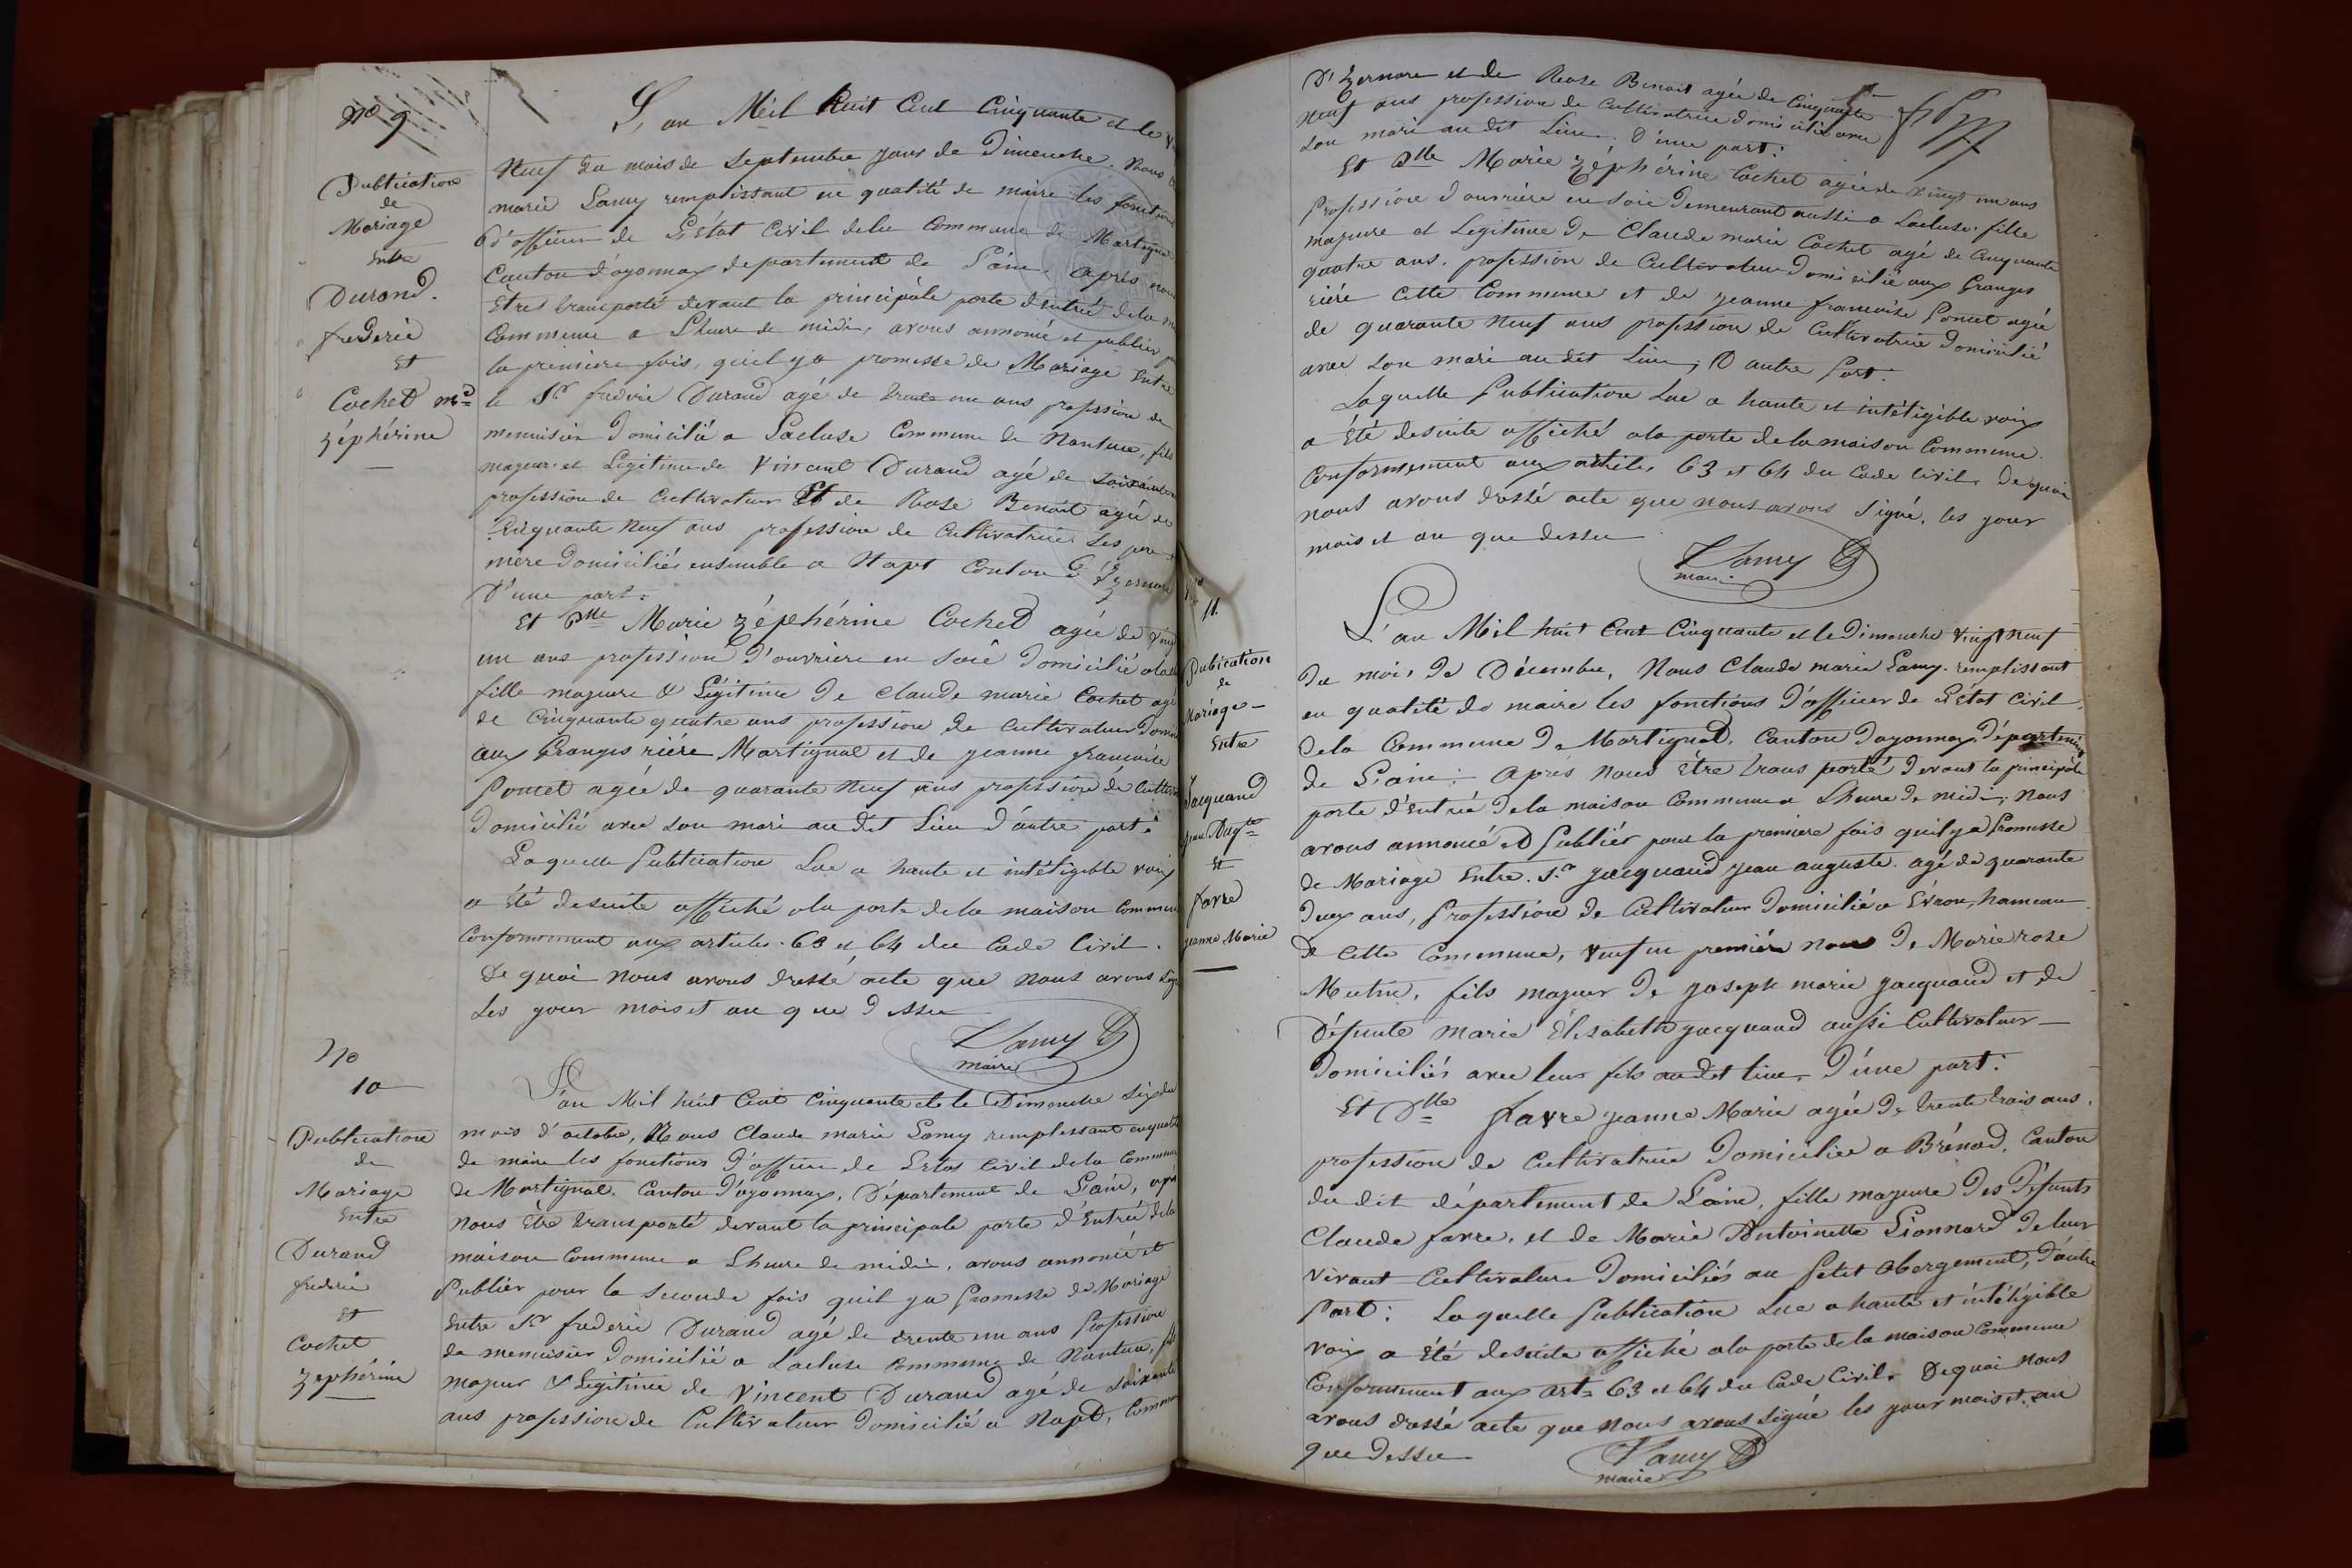 No 9
Publication
de
Mariage
Entre
Durand.
frederic
Et
Cochet Md
zéphérine
L'an Mil huit Cent Cinquante et le
Neuf du mois de Septembre jour de Dimenche. Nous
marie Lamy remplissant en qualité de maire les fonctions
d'officier de L'état Civil dela Commune de Martignat
Canton d'oyonnax departement de L'ain. après nous
Etres transporté devant la principale porte d'entrée dela
Commune a L'heure de midi, avons annoncé et publier
la première fois, quil y a promesse de Mariage Entre
le Sr frederic Durand agé de trente un ans profession de
menuisier Domicilié a Lacluse Commune de Nantua, fils
majeur et Legitime de Vincent Durand agé de soixante
profession de Cultivateur Et de Rose Benoit agée de
Cinquante Neuf ans profession de Cultivatrice Les pere
mere Domiciliés ensemble a Napt Canton d'Izernore
D'une part:
Et Dlle Marie zéphérine Cochet agée de vingt
un ans profession d'ouvriere en soie Domicilié
fille majeure & Légitime De claude marie Cochet agé
de Cinquante quatre ans profession de Cultivateur
aux Granges rière Martignat et de jeanne francoise
Poncet agée de quarante Neuf ans profession de
Domicilié avec son mari au dit Lieu d'autre part:
Laquelle Publication Lue a haute et intéligible voix
a Été desuite affiché ala porte dela maison Commune
Conformement aux articles 63 et 64 du Code Civil.
De quoi Nous avons dressé acte que Nous avons
Les jour mois et an que Dessu
Lamy
maire
No
10
Publication
de
Mariage
Entre
Durand
frederic
et
Cochet
zephérine
L'an Mil huit Cent Cinquante et le Dimenche Six du
mois d'octobre, Nous Claude marie Lamy remplissant en qualité
de maire les fonctions d'officier de Letat Civil dela Commune
de Martignat. Canton d'oyonnax, Département de L'ain, après
Nous Être transporté devant la principale porte d'Entrée dela
maison Commune a Lheure de midi, avons annoncé et
Publier pour la seconde fois quil ya Promesse de Mariage
Entre Sr frederic Durand agé de trente un ans Profession
de menuisier Domicilié a Lacluse Commune de Nantua, fils
majeur & Legitime de Vincent Durand agé de soixante
ans profession de Cultivateur Domicilié a Napt, Commune
D'Izernore et de Rose Benoit agée de Cinquante
Neuf ans profession de Cultivatrice domicilié avec
son mari au dit Lieu. D'une part:
Et Dlle Marie zéphérine Cochet agée de vingt un ans
Profession d'ouvrière en soie Demeurant aussi a Lacluse. fille
majeure et Legitime De Claude marie Cochet agé de Cinquante
quatre ans. profession de Cultivateur Domicilié aux Granges
rière Cette Commune et de jeanne francoise Poncet agée
de quarante Neuf ans profession de Cultivatrice Domicilié
avec son mari au dit Lieu; D'autre Part:
Laquelle Publication Lue a haute et intéligible voix
a Été desuite affiché ala porte dela maison Commune.
Conformement aux articles 63 et 64 du Code Civil. De quoi
nous avons dressé acte que nous avons Signé, les jour
mois et an que dessu
Lamy
maire
11.
Publication
de
Mariage
Entre
Jacquand
jean Augte
Et
favre
jeanne Marie
L'an Mil huit Cent Cinquante et le Dimenche vingt Neuf
Du mois De Décembre, Nous Claude marie Lamy remplissant
en qualité de maire les fonctions d'officier de L'état Civil,
Dela Commune De Martignat, Canton Doyonnax, Département
de L'ain; Après Nous Être transporté Devant la principale
porte d'Entrée Dela maison Commune a Lheure De midi; Nous
avons annoncé et Publiér pour la premiere fois quil ya Promesse
de Mariage Entre. Sr jacquand jean auguste. agé de quarante
Deux ans, Profession de Cultivateur Domicilié a Évron, hameau
de Cette Commune, Veuf en premiére Noce De Marie rose
Mutin, fils majeur De joseph marie jacquand et de
Défunte Marie Élisabeth jacquand aussi Cultivateur
Domiciliés avec leur fils au dit lieu. D'une part:
Et Dlle favre jeanne Marie agée De trente trois ans.
profession de Cultivatrice Domiciliée a Brénod, Canton
du dit département de L'ain, fille majeure Des Défunts
Claude favre, et de Marie Antoinette Lionnard De leur
vivant Cultivateur Domiciliés au Petit Abergement, D'autre
Part: Laquelle Publication Lue a haute et intéligible
voix a Été desuite affiché ala porte de la maison Commune
Conformement aux art= 63 et 64 du Code Civil. De quoi Nous
avons dressé acte que Nous avons signé les jour mois et an
que Dessu
Lamy
maire